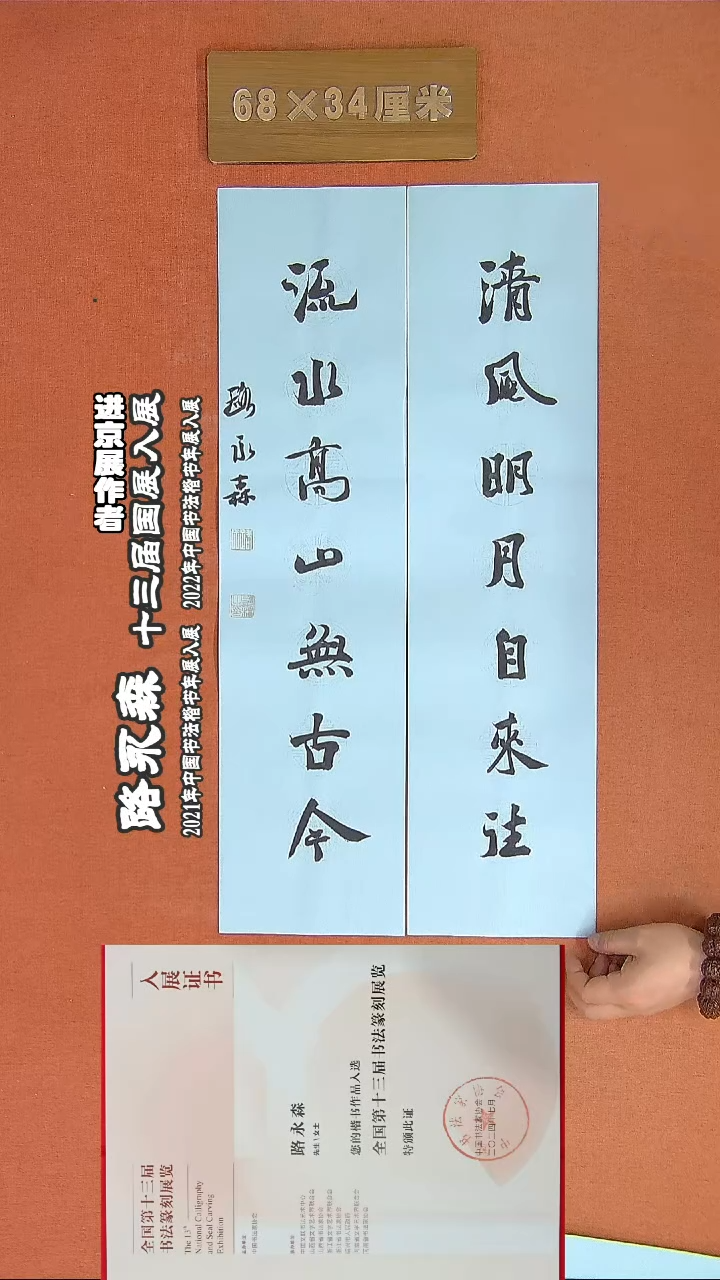 68×34厘米
清風明月自來往
流水高山無古今
路永森
路永森 十三届国展入展
2021年中国书法楷书年展入展 2022年中国书法楷书年展入展
全国第十三届
书法篆刻展览
The 13th
National Calligraphy
and Seal Carving
Exhibition
入展证书
路永森
先生\女士
您的楷书作品入选
全国第十三届书法篆刻展览
特颁此证
中国书法家协会
二〇二四年七月